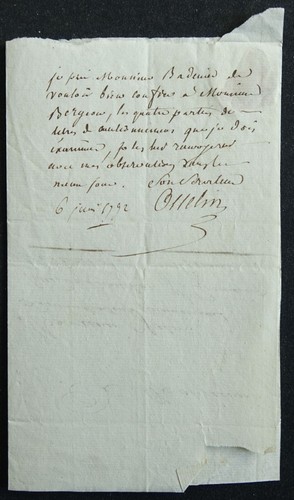 je prie Monsieur Badenier de
vouloir bien confier à Monsieur
Bergeron, les quatre parties de
titres de cautionnemens que je dois
examiner, je les lui renverrai
avec mes observations dans le
même jour. Son Serviteur
6 juin 1792 Osselin